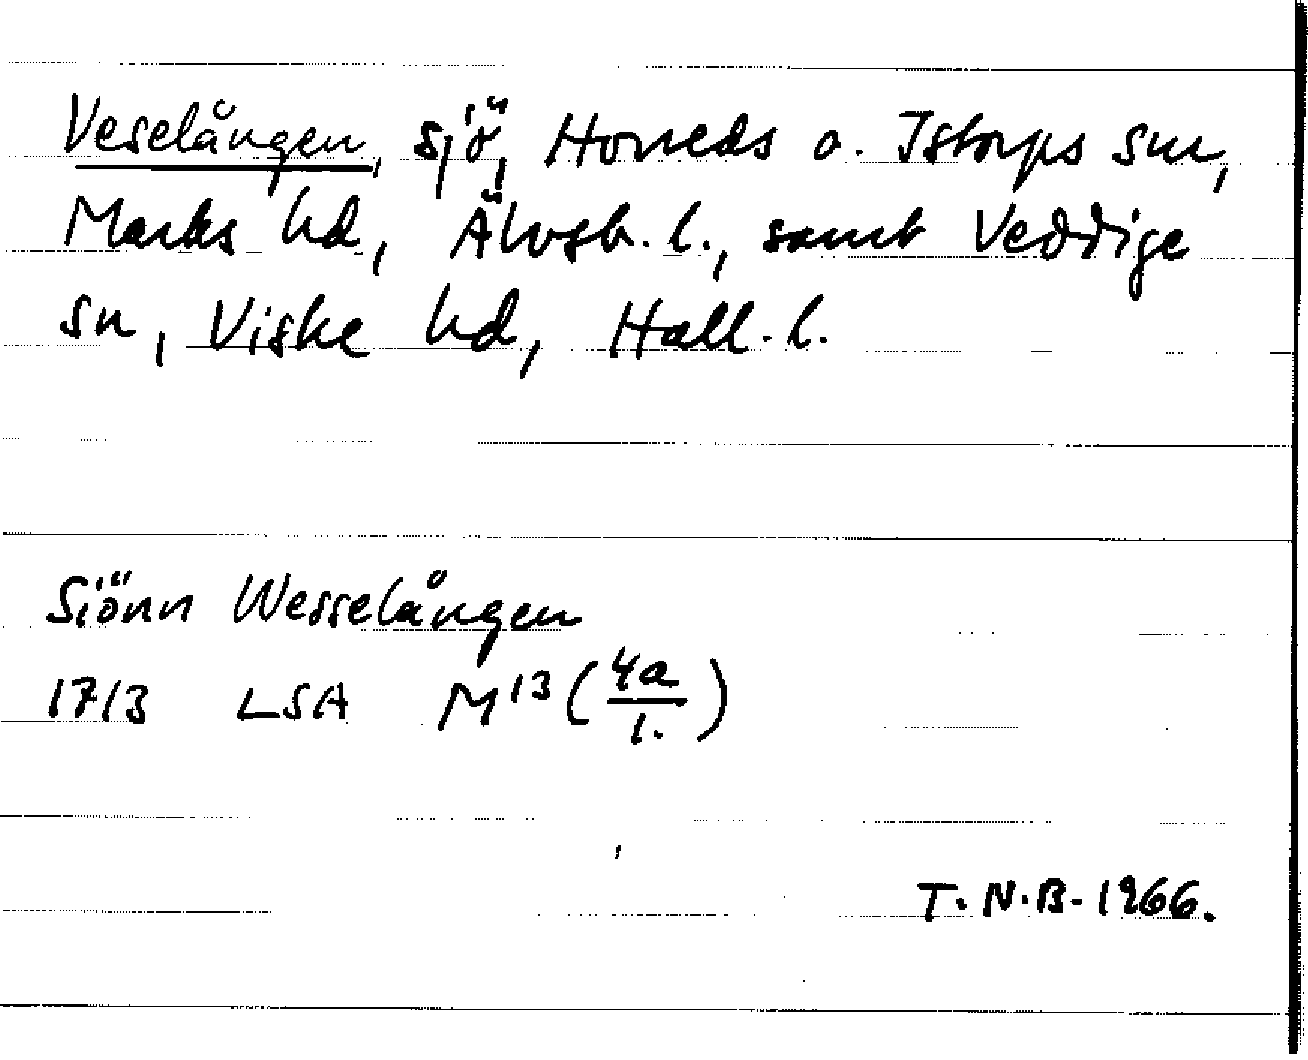 Veselången, sjö, Horreds o. Istorps snr,
Marks hd, Älvsb. l., samt Veddige
sn, Viske hd, Hall. l.
Siönn Wesselången
1713 LSA M¹³ (4a/1.)
T. N. B. 1966.